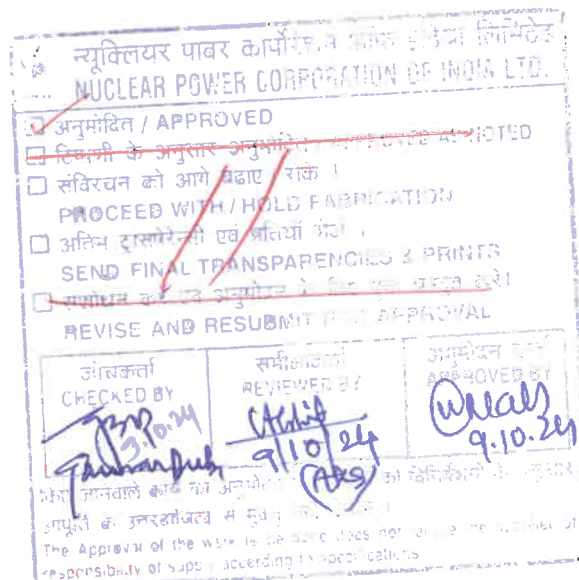 न्यूक्लियर पावर कार्पोरेशन आफ इंडिया लिमिटेड
NUCLEAR POWER CORPORATION OF INDIA LTD.
अनुमोदित / APPROVED
टिप्पणी के अनुसार अनुमोदित APPROVED AS NOTED
संविरचन को आगे बढाए / रोक ।
PROCEED WITH / HOLD FABRICATION
अंतिम ट्रांसपेरेन्सी एवं प्रतियाँ भेजे ।
SEND FINAL TRANSPARENCIES & PRINTS
संशोधन करे एवं अनुमोदन के लिए पुनः प्रस्तुत करे।
REVISE AND RESUBMIT FOR APPROVAL
जांचकर्ता
CHECKED BY
3.10.24
समीक्षाकर्ता
REVIEWED BY
9/10/24
अनुमोदन कर्ता
APPROVED BY
9.10.24
किए जानेवाले कार्य का अनुमोदन को विनिर्देशों के अनुसार
आपूर्ति के उत्तरदायित्व से मुक्त
The Approval of the work to be done does not the of
responsibility of supply according to specifications